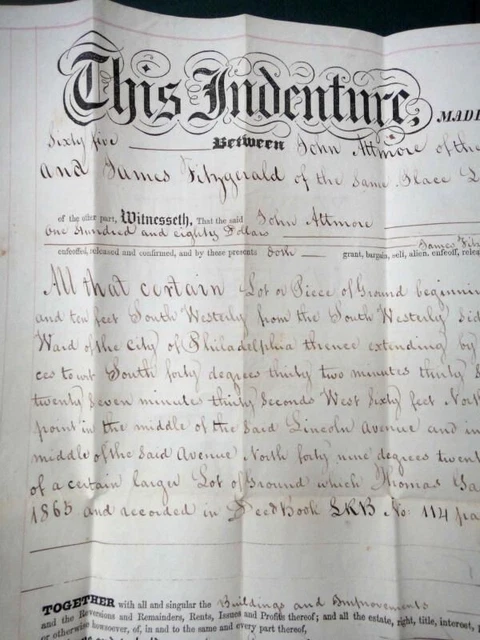 This Indenture, MADE
Sixty five Between John Attmore of the
and James Fitzgerald of the same Place
of the other part, Witnesseth, That the said John Attmore
one hundred and eighty Dollars
James
enfeoffed, released and confirmed, and by these presents doth grant, bargain, sell, alien, enfeoff,
All that certain Lot or Piece of Ground
and ten feet South Westerly from the South Westerly
Ward of the City of Philadelphia thence extending by
ces to wit South forty degrees thirty two minutes thirty
twenty seven minutes thirty seconds West Sixty feet
point in the middle of the said Lincoln Avenue and in
middle of the said Avenue North forty nine degrees
of a certain larger Lot of Ground which Thomas
1865 and recorded in Deed Book L.R.B No: 114
TOGETHER with all and singular the Buildings and Improvements
and the Reversions and Remainders, Rents, Issues and Profits thereof; and all the estate, right, title, interest,
or otherwise howsoever, of, in and to the same and every part thereof,